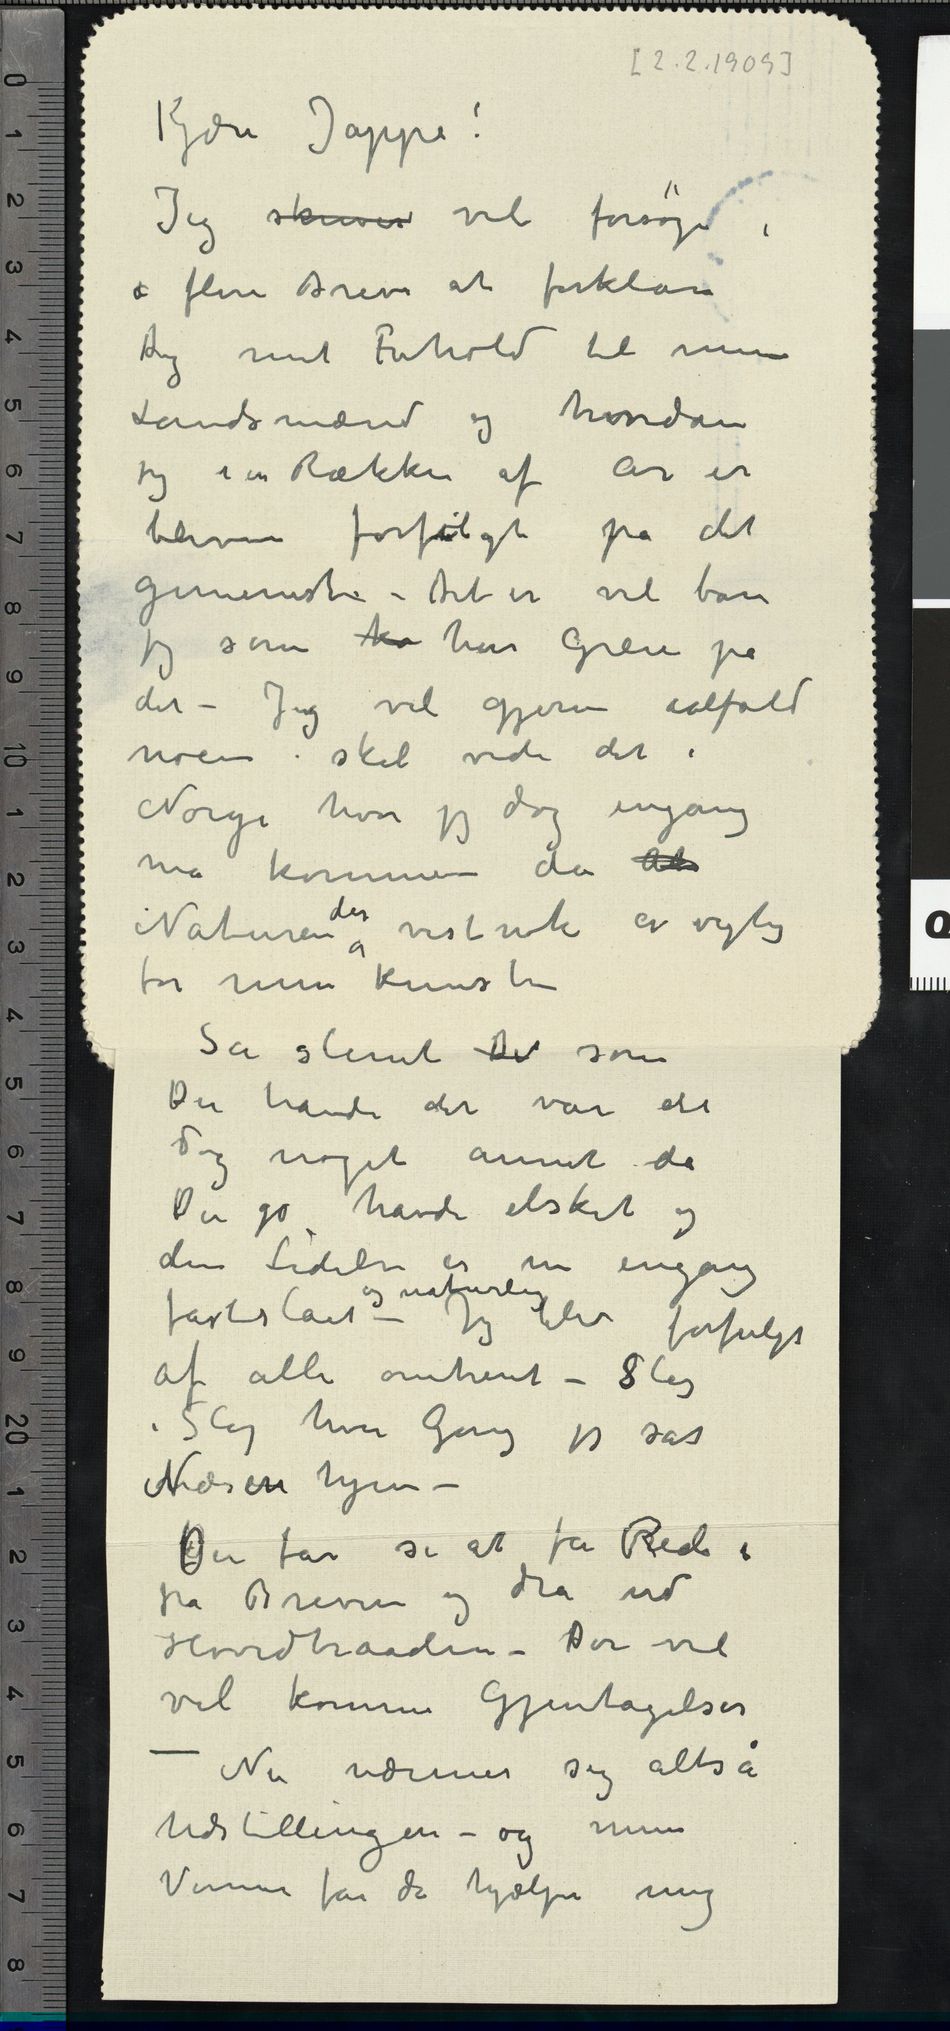 [2.2.1909]
Kjære Jappe!
Jeg skriver vil forsöge i
i flere Breve at forklare
Dig mit Forhold til mine
Landsmænd og hvordan
jeg i en Række af År er
bleven forfulgt på det
gemeneste – Det er vel bare
jeg som ha har Græie på
det – Jeg vil gjerne ialfald
noen skal vide det i
Norge hvor jeg dog engang
må komme da
Naturen der vistnok er vigtig
for min Kunst
Så slemt Det som
Du havde det var det
dog noget annet da
Du jo havde elsket og
den Lidelse er nu engang
fastslået og naturlig – Jeg blev forfulgt
af alle omtrent – Slag
i Slag hver Gang jeg satt
Næsen hjem –
Du får se at få Rede
på Breven og dra ud
Hovedtraaden – Der vil
vel komme Gjentagelser
– Nu nærmer sig altså
Udstillingen – og mine
Venner får da hjælpe mig
0 1 2 3 4 5 6 7 8 9 10 1 2 3 4 5 6 7 8 9 20 1 2 3 4 5 6 7 8